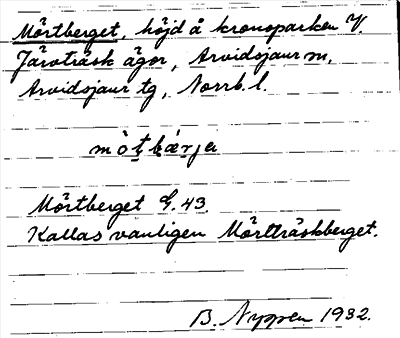 Mörtberget, höjd å kronoparken V.
Järvträsk ägor, Arvidsjaur sn,
Arvidsjaur tg, Norrb. l.
mòt̥bæ̀rja
Mörtberget G. 43.
Kallas vanligen Mörtträskberget.
B. Nyppen 1932.